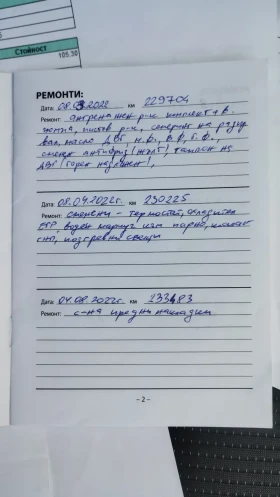 Стойност
105,30
РЕМОНТИ:
Дата: 08.03.2022 км 229704
Ремонт: ангренажен р-к комплект + в.
помпа, пистов р-к, семеринг на разпр.
вал, масло ДВГ, м.ф., в.ф, г.ф.,
смяна антифриз (жълт), тампон на
ДВГ (горен
Дата: 08.04.2022г. км 230225
Ремонт: сменени - термостат, охладител
ЕГР, воден маркуч към парно, клапан
подгревни свещи
Дата: 04.08.2022г. км 233483
Ремонт: с-на предни накладки
- 2 -